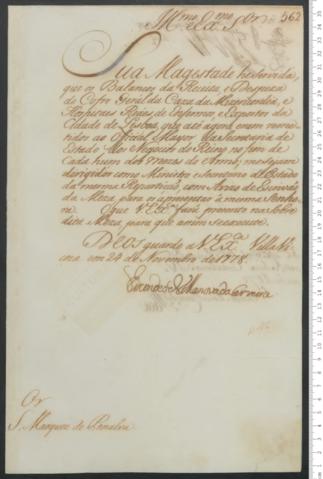 Ill.mo Ex.mo Sr.
562
Sua Magestade he servida,
que os Balanços da Receita, e Despeza
do Cofre Geral da Caza da Mizericordia, e
Hospitaes Reaes de Enfermos, e Expostos da
Cidade de Lisboa, que até agora erão remet-
tidos ao Official Mayor da Secretaria de
Estado dos Negocios do Reino no fim de
Cada hum dos Mezes do Anno, me sejam
dirigidos como Ministro e Secretario de Estado
da mesma Repartição, com Avizo do Escrivão
da Meza, para os aprezentar á mesma Senho-
ra. O que V. Ex.ª fará prezente na sobre
dita Meza, para que assim se execute.
Deos guarde a V. Ex.ª Villa Vi-
coza em 24 de Novembro de 1778.
Visconde de Villanova da Cerveira
Sr.
Marquez de Penalva